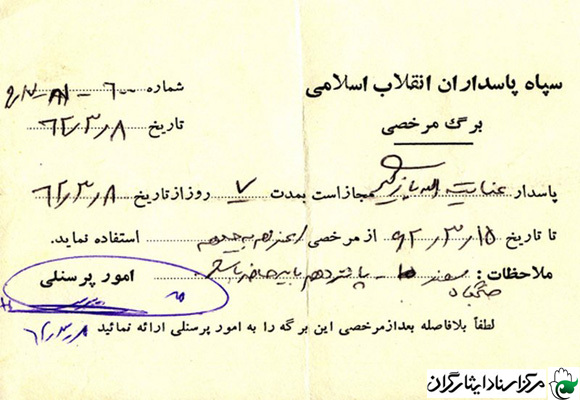 سپاه پاسداران انقلاب اسلامی
شماره
برگ مرخصی
تاریخ ۶۲/۳/۸
پاسدار عنایت اله مجاز است بمدت ۷ روز از تاریخ ۶۲/۳/۸
تا تاریخ ۶۲/۳/۱۵ از مرخصی استفاده نماید.
ملاحظات: پانزدهم باید
امور پرسنلی
لطفاً بلافاصله بعد از مرخصی این برگه را به امور پرسنلی ارائه نمائید
مرکز اسناد ایثارگران